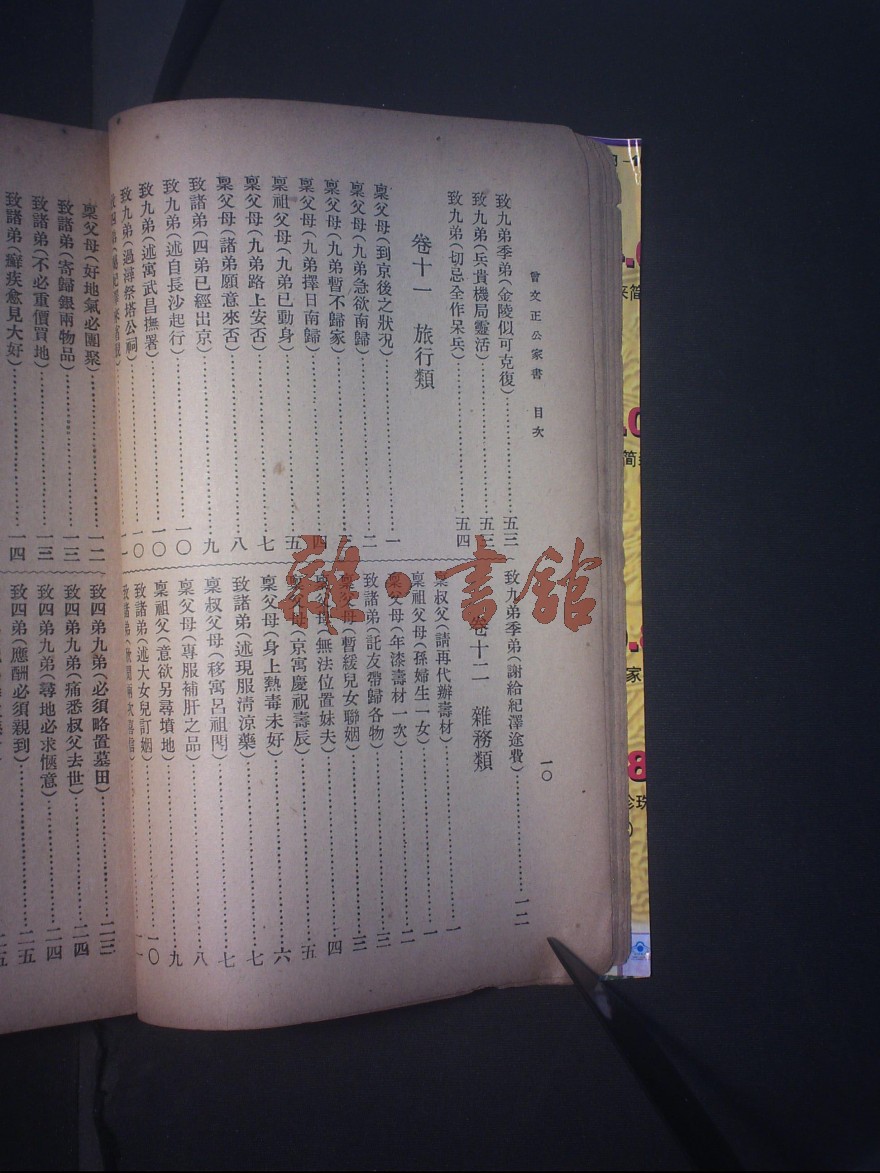 曾文正公家書　目次
一〇
致九弟季弟(金陵似可克復)……五三
致九弟(兵貴機局靈活)……五三
致九弟(切忌全作呆兵)……五四
卷十一　旅行類
稟父母(到京後之狀況)……一
稟父母(九弟急欲南歸)……二
稟父母(九弟暫不歸家)……
稟父母(九弟擇日南歸)……四
稟祖父母(九弟已動身)……五
稟父母(九弟路上安否)……七
稟父母(諸弟願意來否)……八
致諸弟(四弟已經出京)……九
致九弟(述自長沙起行)……一〇
致九弟(述寓武昌撫署)……一〇
致九弟(過潯祭塔公祠)……一〇
致九弟季弟(謝給紀澤途費)……一二
卷十二　雜務類
稟叔父(請再代辦壽材)……一
稟祖父母(孫婦生一女)……一
稟父母(年漆壽材一次)……二
致諸弟(託友帶歸各物)……三
稟父母(暫緩兒女聯姻)……三
稟父母(無法位置妹夫)……四
稟父母(京寓慶祝壽辰)……五
稟父母(身上熱毒未好)……六
致諸弟(述現服清涼藥)……七
稟叔父母(移寓呂祖閣)……七
稟父母(專服補肝之品)……八
稟祖父(意欲另尋墳地)……九
致諸弟(述大女兒訂姻)……一〇
稟父母(好地氣必團聚)……一二
致諸弟(寄歸銀兩物品)……一三
致諸弟(不必重價買地)……一三
致諸弟(癬疾愈見大好)……一四
致四弟九弟(必須略置墓田)……二三
致四弟九弟(痛悉叔父去世)……二四
致四弟九弟(尋地必求愜意)……二四
致四弟(應酬必須親到)……二五
雜·書館
来简
家
珍珠